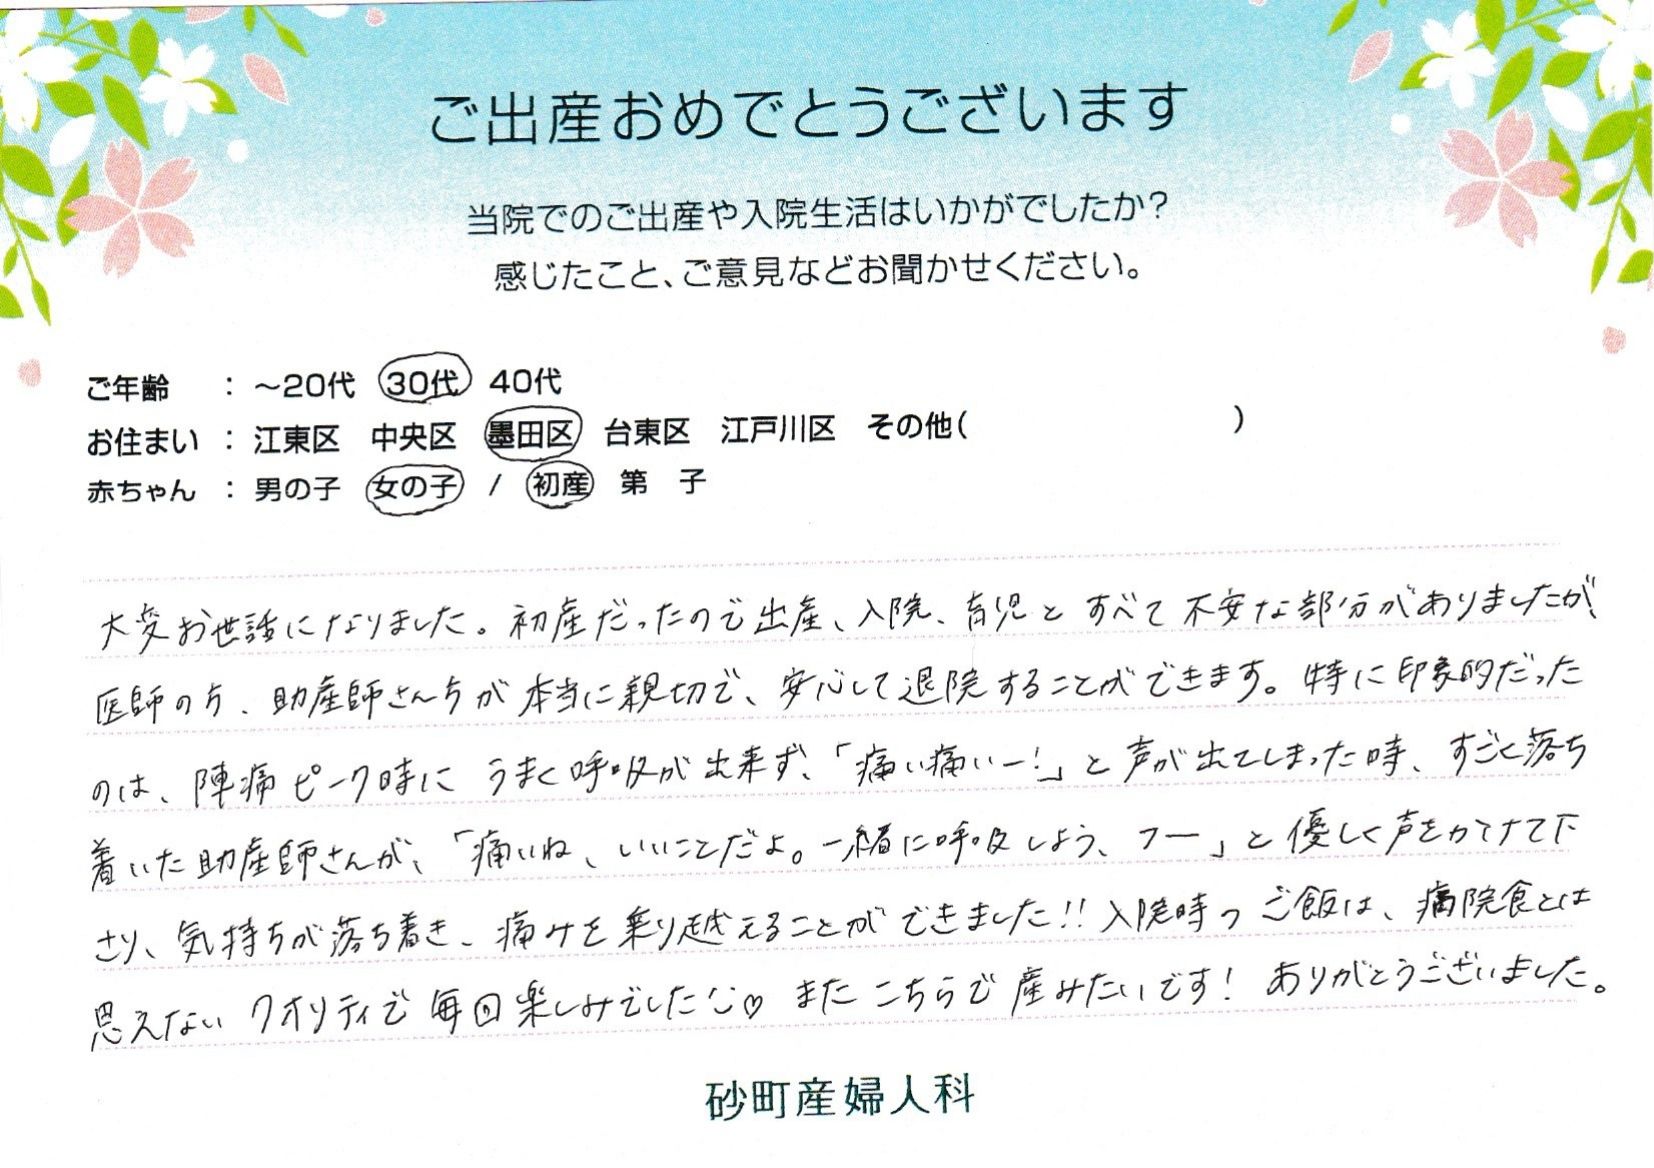 ご出産おめでとうございます
当院でのご出産や入院生活はいかがでしたか?
感じたこと、ご意見などお聞かせください。
ご年齢 : ～20代 30代 40代
お住まい : 江東区 中央区 墨田区 台東区 江戸川区 その他( )
赤ちゃん : 男の子 女の子 / 初産 第 子
大変お世話になりました。初産だったので出産、入院、育児とすべて不安な部分がありましたが、
医師の方、助産師さん方が本当に親切で、安心して退院することができます。特に印象的だった
のは、陣痛ピーク時にうまく呼吸が出来ず、「痛い痛いー!」と声が出てしまった時、すごく落ち
着いた助産師さんが、「痛いね、いいことだよ。一緒に呼吸しよう、フー」と優しく声をかけて下
さり、気持ちが落ち着き、痛みを乗り越えることができました!!入院時のご飯は、病院食とは
思えないクオリティで毎回楽しみでした♡またこちらで産みたいです!ありがとうございました。
砂町産婦人科